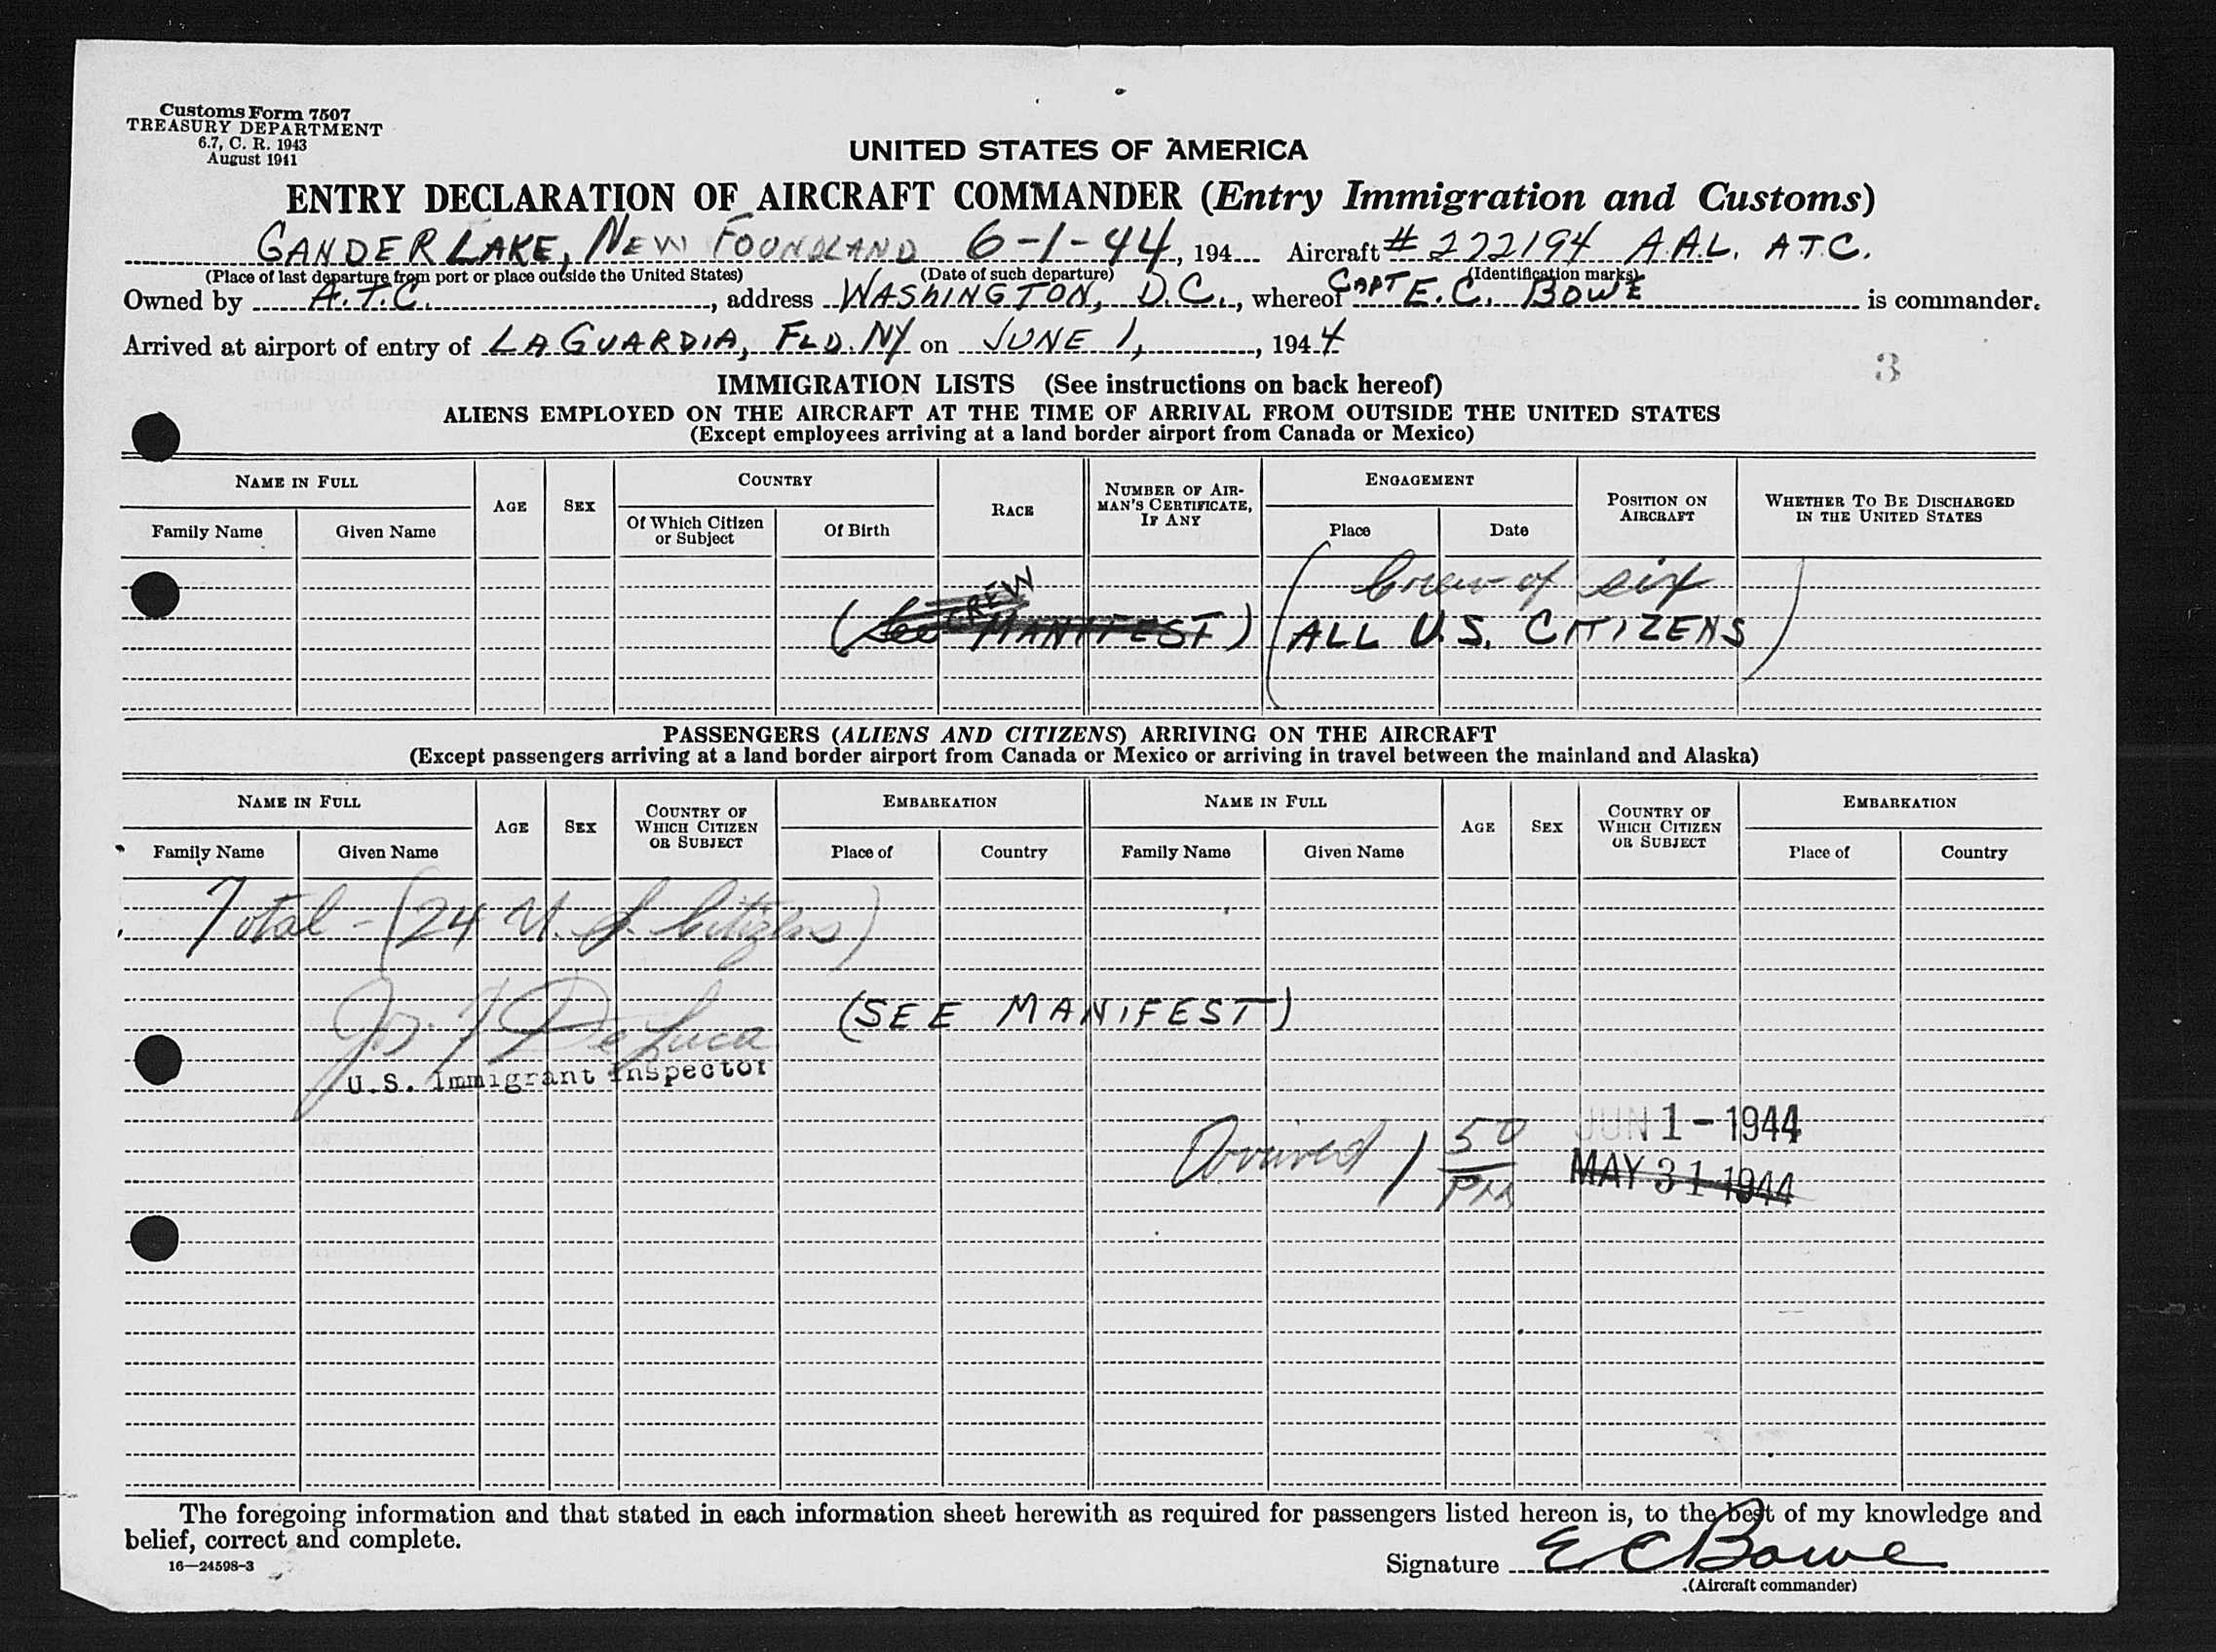 Customs Form 7507
TREASURY DEPARTMENT
6.7, C. R. 1943
August 1941
UNITED STATES OF AMERICA
ENTRY DECLARATION OF AIRCRAFT COMMANDER (Entry Immigration and Customs)
GANDER LAKE, NEW FOUNDLAND 6-1-44, 194 Aircraft # 272194 A.A.L. A.T.C.
(Place of last departure from port or place outside the United States) (Date of such departure) (Identification marks)
Owned by A.T.C., address WASHINGTON, D.C., whereof CAPT E. C. BOWE is commander.
Arrived at airport of entry of LAGUARDIA, FLD. NY on JUNE 1, 1944
3
IMMIGRATION LISTS (See instructions on back hereof)
ALIENS EMPLOYED ON THE AIRCRAFT AT THE TIME OF ARRIVAL FROM OUTSIDE THE UNITED STATES
(Except employees arriving at a land border airport from Canada or Mexico)
NAME IN FULL AGE SEX COUNTRY RACE NUMBER OF AIRMAN'S CERTIFICATE, IF ANY ENGAGEMENT POSITION ON AIRCRAFT WHETHER TO BE DISCHARGED IN THE UNITED STATES
Family Name Given Name Of Which Citizen or Subject Of Birth Place Date
Crew of six
(See CREW MANIFEST) (ALL U.S. CITIZENS)
PASSENGERS (ALIENS AND CITIZENS) ARRIVING ON THE AIRCRAFT
(Except passengers arriving at a land border airport from Canada or Mexico or arriving in travel between the mainland and Alaska)
NAME IN FULL AGE SEX COUNTRY OF WHICH CITIZEN OR SUBJECT EMBARKATION NAME IN FULL AGE SEX COUNTRY OF WHICH CITIZEN OR SUBJECT EMBARKATION
Family Name Given Name Place of Country Family Name Given Name Place of Country
Total - (24 U. S. Citizens)
Jos. F DeLuca (SEE MANIFEST)
U.S. Immigrant Inspector
Arrived 1 50 PM JUN 1 - 1944
MAY 31 1944
The foregoing information and that stated in each information sheet herewith as required for passengers listed hereon is, to the best of my knowledge and
belief, correct and complete.
16—24598-3
Signature E C Bowe
(Aircraft commander)